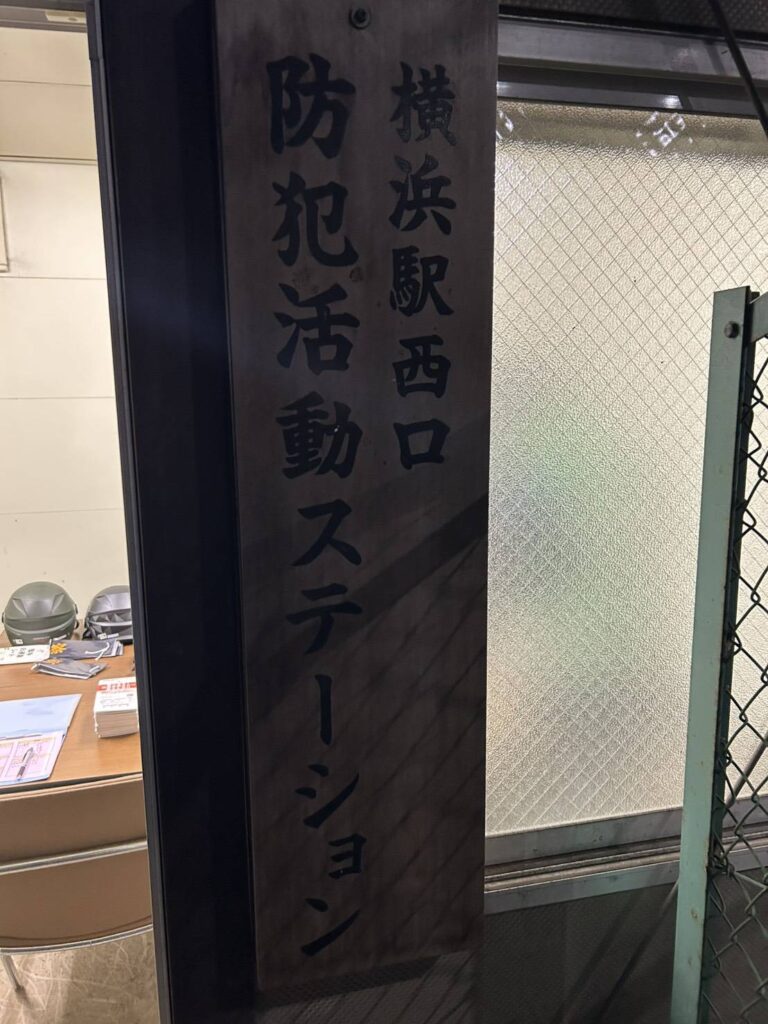 横浜駅西口
防犯活動ステーション